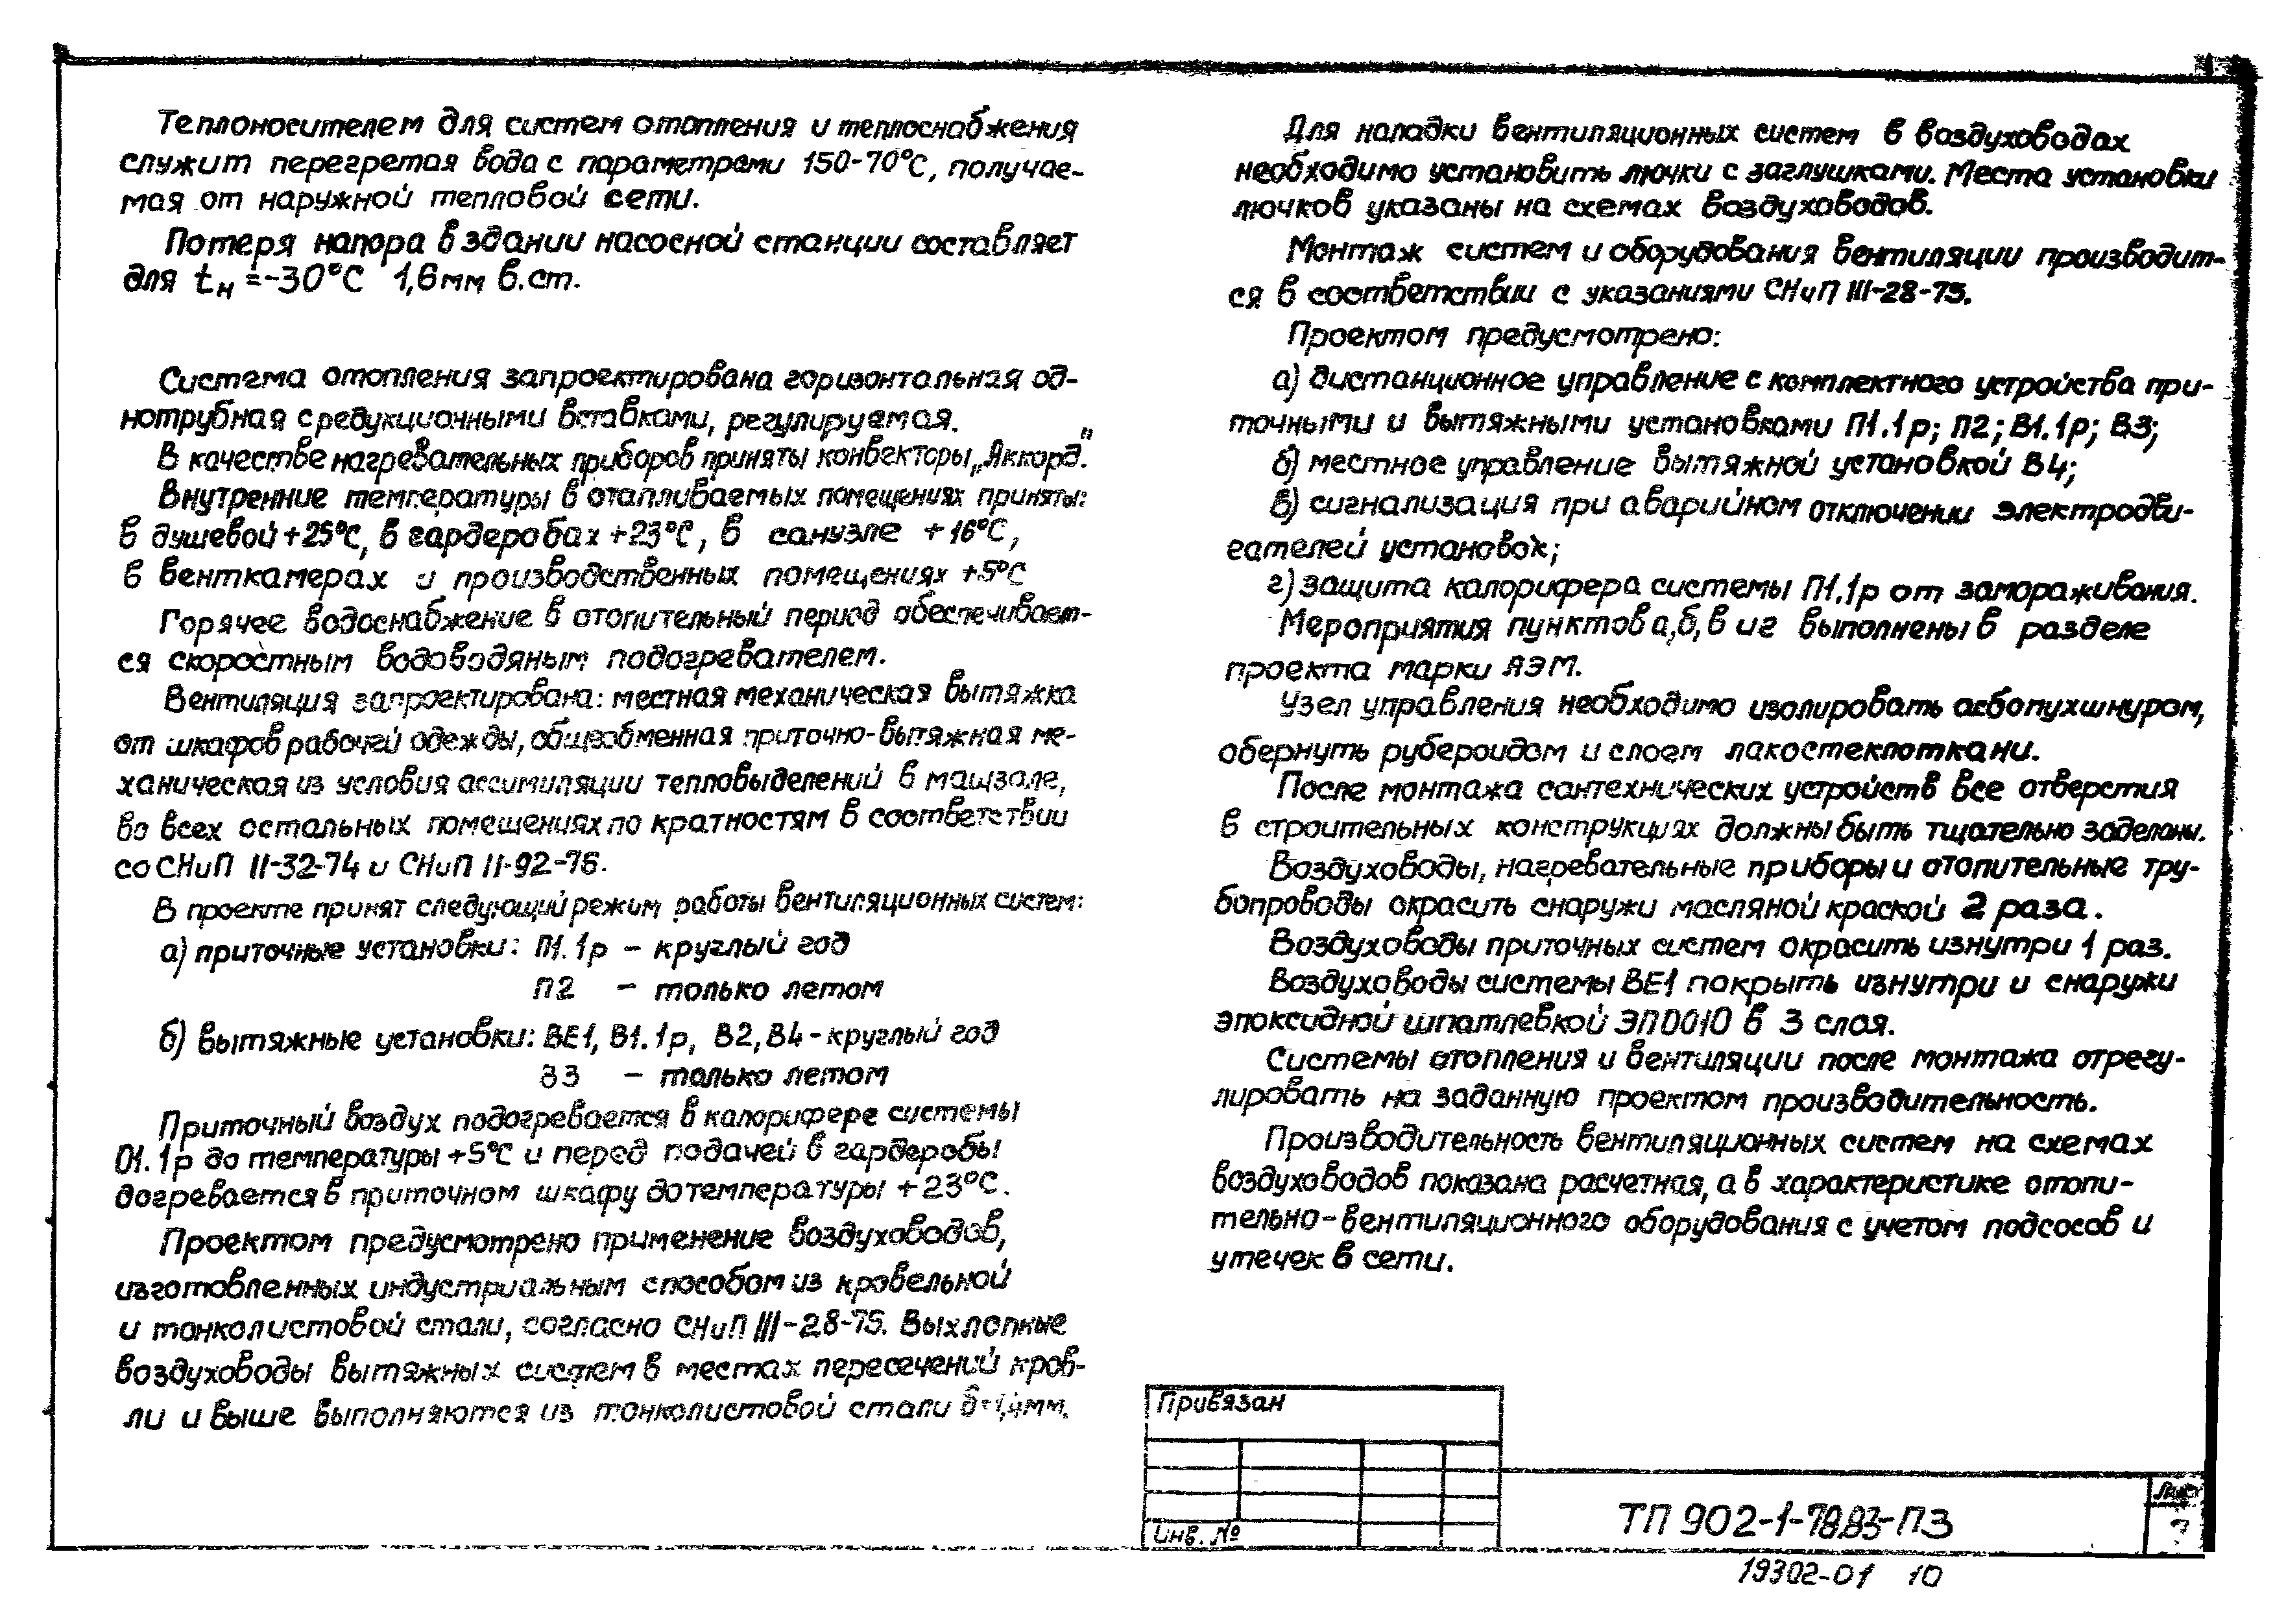 Теплоносителем для систем отопления и теплоснабжения
служит перегретая вода с параметрами 150-70°С, получае-
мая от наружной тепловой сети.
Потеря напора в здании насосной станции составляет
для tн =-30°С 1,6мм в.ст.
Система отопления запроектирована горизонтальная од-
нотрубная с редукционными вставками, регулируемая.
В качестве нагревательных приборов приняты конвекторы „Аккорд."
Внутренние температуры в отапливаемых помещениях приняты:
в душевой +25°С, в гардеробах +23°С, в санузле +16°С,
в венткамерах и производственных помещениях +5°С
Горячее водоснабжение в отопительный период обеспечивает-
ся скоростным водоводяным подогревателем.
Вентиляция запроектирована: местная механическая вытяжка
от шкафов рабочей одежды, общеобменная приточно-вытяжная ме-
ханическая из условия ассимиляции тепловыделений в машзале,
во всех остальных помещениях по кратностям в соответствии
со СНиП II-32-74 и СНиП II-92-76.
В проекте принят следующий режим работы вентиляционных систем:
а) приточные установки: П1.1р – круглый год
П2 – только летом
б) вытяжные установки: ВЕ1, В1.1р, В2, В4 - круглый год
В3 – только летом
Приточный воздух подогревается в калорифере системы
П1.1р до температуры +5°С и перед подачей в гардеробы
догревается в приточном шкафу до температуры +23°С.
Проектом предусмотрено применение воздуховодов,
изготовленных индустриальным способом из кровельной
и тонколистовой стали, согласно СНиП III-28-75. Выхлопные
воздуховоды вытяжных систем в местах пересечений кров-
ли и выше выполняются из тонколистовой стали δ=1,4мм.
Для наладки вентиляционных систем в воздуховодах
необходимо установить лючки с заглушками. Места установки
лючков указаны на схемах воздуховодов.
Монтаж систем и оборудования вентиляции производит-
ся в соответствии с указаниями СНиП III-28-75.
Проектом предусмотрено:
а) дистанционное управление с комплектного устройства при-
точными и вытяжными установками П1.1р; П2; В1.1р; В3;
б) местное управление вытяжной установкой В4;
в) сигнализация при аварийном отключении электродви-
гателей установок;
г) защита калорифера системы П1.1р от замораживания.
Мероприятия пунктов а,б,в и г выполнены в разделе
проекта марки АЭМ.
Узел управления необходимо изолировать асбопухшнуром,
обернуть рубероидом и слоем лакостеклоткани.
После монтажа сантехнических устройств все отверстия
в строительных конструкциях должны быть тщательно заделаны.
Воздуховоды, нагревательные приборы и отопительные тру-
бопроводы окрасить снаружи масляной краской 2 раза.
Воздуховоды приточных систем окрасить изнутри 1 раз.
Воздуховоды системы ВЕ1 покрыть изнутри и снаружи
эпоксидной шпатлевкой ЭП0010 в 3 слоя.
Системы отопления и вентиляции после монтажа отрегу-
лировать на заданную проектом производительность.
Производительность вентиляционных систем на схемах
воздуховодов показана расчетная, а в характеристике отопи-
тельно-вентиляционного оборудования с учетом подсосов и
утечек в сети.
Привязан
Инв. №
ТП 902-1-78.83-ПЗ
Лист
19302-01 10